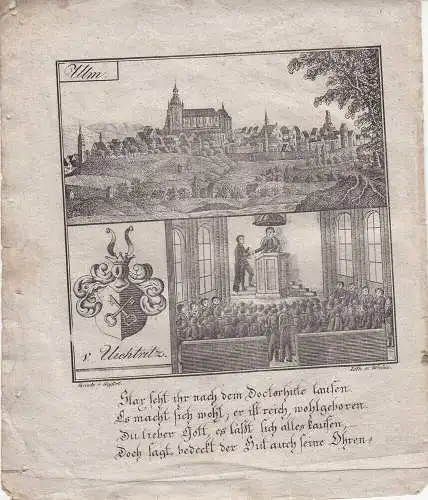 Ulm.
v. Uechtritz.
Lith. v.
Star seht ihr nach dem Doctorhute laufen
Es macht sich wohl, er ist reich, wohlgeboren.
Du lieber Gott, es läßt sich alles kaufen,
Doch sagt, bedeckt der Hut auch seine Ohren.